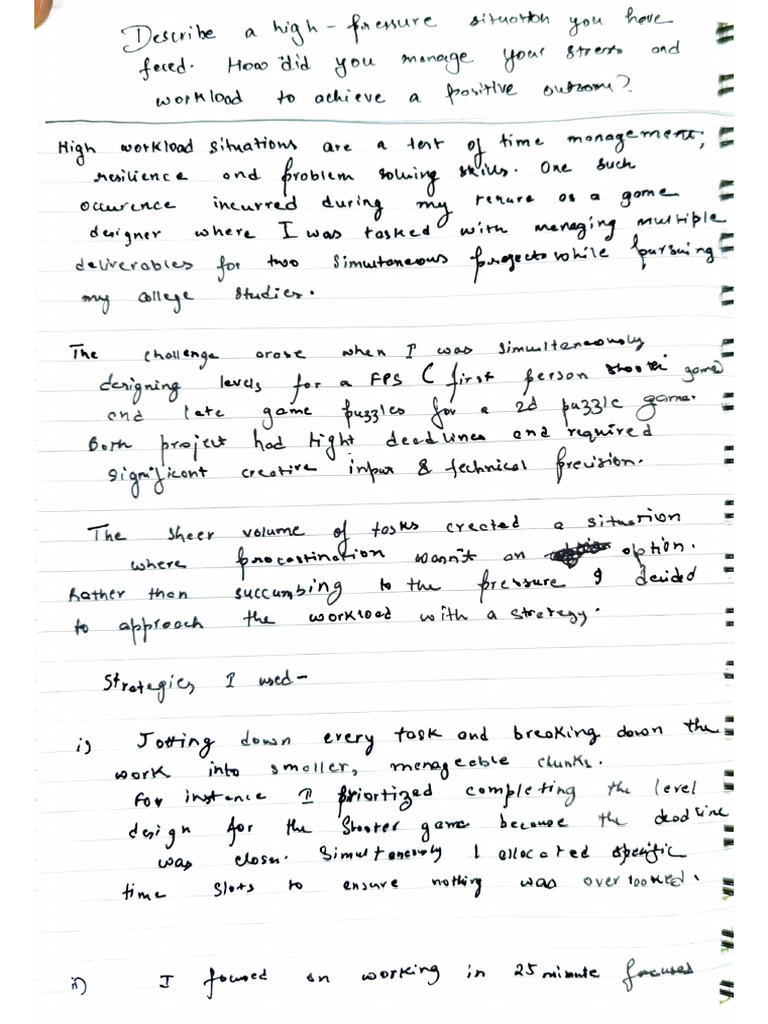 Describe a high-pressure situation you have
faced. How did you manage your stress and
workload to achieve a positive outcome?
High workload situations are a test of time management,
resilience and problem solving skills. One such
occurence incurred during my tenure as a game
designer where I was tasked with managing multiple
deliverables for two simultaneous projects while pursuing
my college studies.
The challenge arose when I was simultaneously
designing levels for a FPS ( first person shooter game)
and late game puzzles for a 2d puzzle game.
Both project had tight deadlines and required
significant creative input & technical precision.
The sheer volume of tasks created a situation
where procastination wasn't an option.
Rather than succumbing to the pressure I decided
to approach the workload with a strategy.
Strategies I used-
i) Jotting down every task and breaking down the
work into smaller, manageable chunks.
For instance I priortized completing the level
design for the shooter game because the deadline
was closer. Simultaneously I allocated specific
time slots to ensure nothing was overlooked.
ii) I focused on working in 25 minute focused